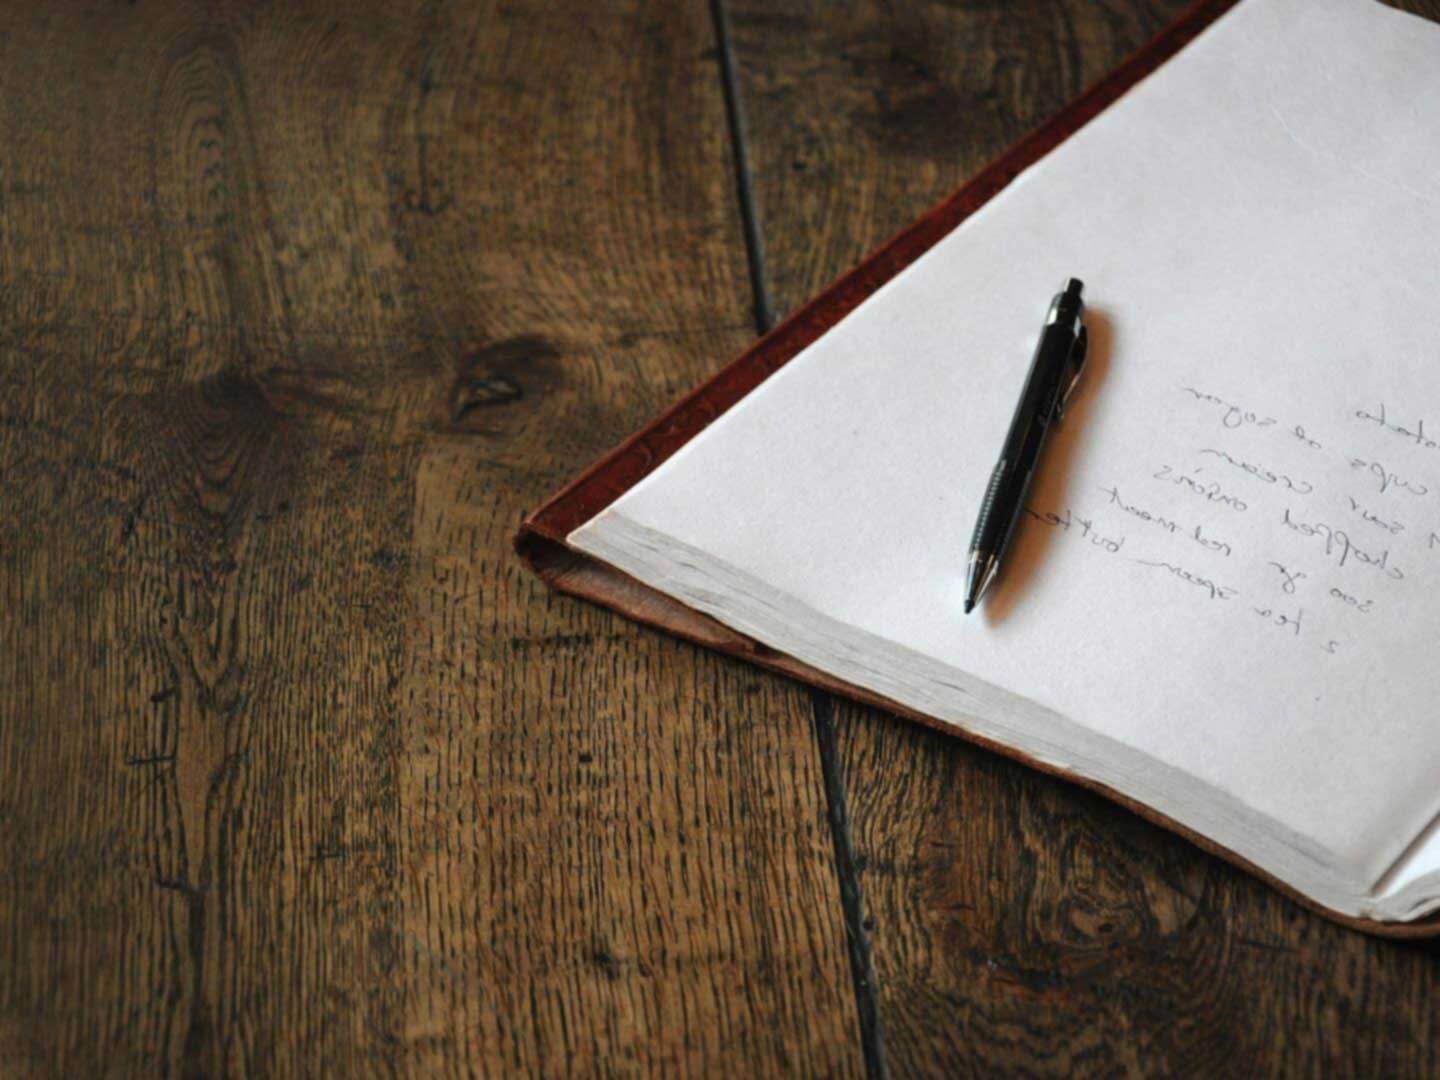 otato
cups of sugar
sour cream
chopped onions
500 gr red meat
2 tea spoon butter